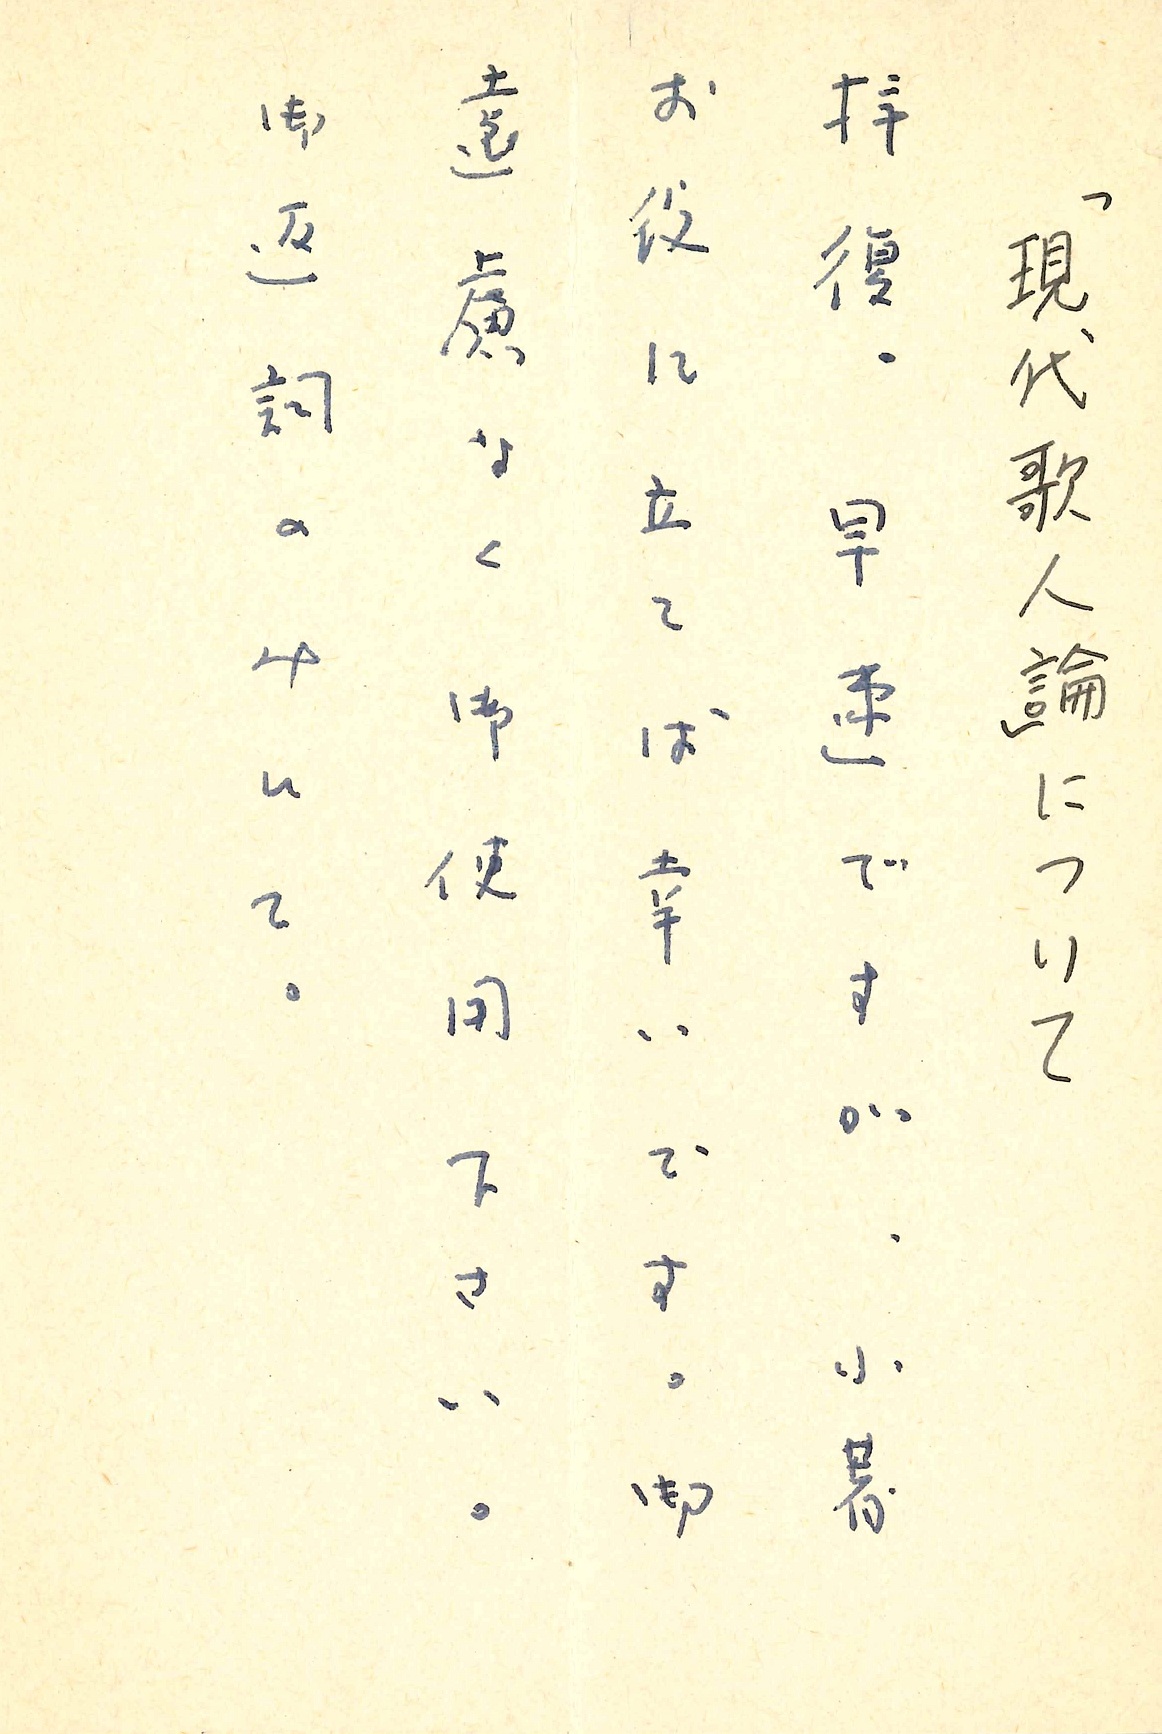 「現代歌人論」について
拝復。早速ですが、小著
お役に立てば幸いです。御
遠慮なく御使用下さい。
御返詞のみにて。